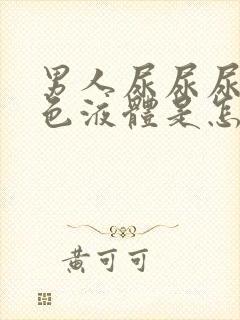 男人尿尿尿
色液體是怎
黃可可